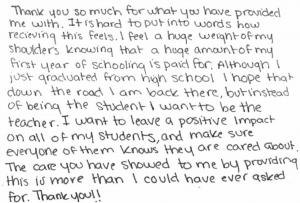 Thank you so much for what you have provided
me with. It is hard to put into words how
recieving this feels. I feel a huge weight of my
shoulders knowing that a huge amount of my
first year of schooling is paid for. Although I
just graduated from high school I hope that
down the road I am back there, but instead
of being the student I want to be the
teacher. I want to leave a positive impact
on all of my students, and make sure
everyone of them knows they are cared about.
The care you have showed to me by providing
this is more than I could have ever asked
for. Thank you!!